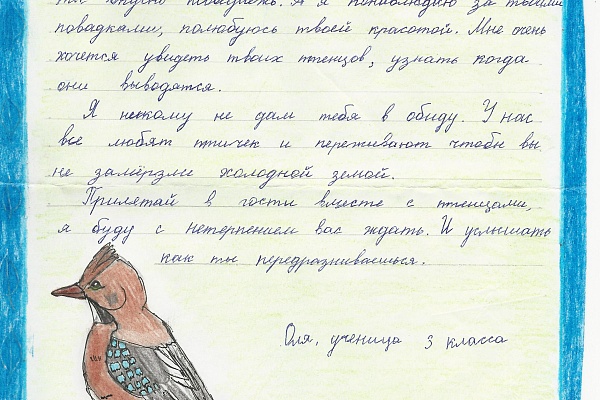 ты вкусно пообедаешь. А я понаблюдаю за твоими
повадками, полюбуюсь твоей красотой. Мне очень
хочется увидеть твоих птенцов, узнать когда
они выводятся.
Я никому не дам тебя в обиду. У нас
все любят птичек и переживают чтобы вы
не замёрзли холодной зимой.
Прилятай в гости вместе с птенцами,
я буду с нетерпением вас ждать. И услышать
как ты передразниваешься.
Оля, ученица 3 класса